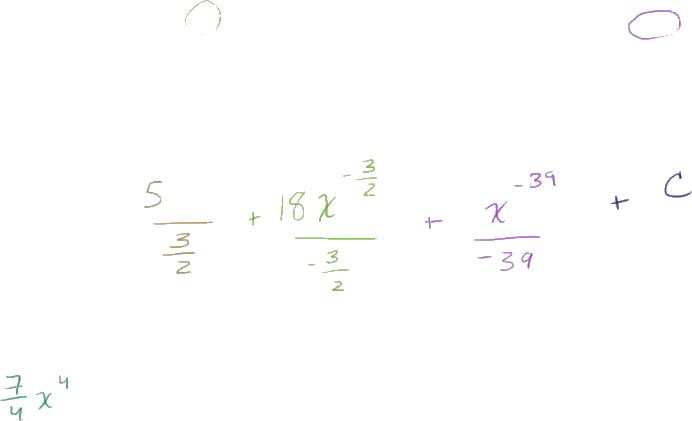 5/(3/2) + 18x^(-3/2)/(-3/2) + x^(-39)/(-39) + C
7/4 x^4